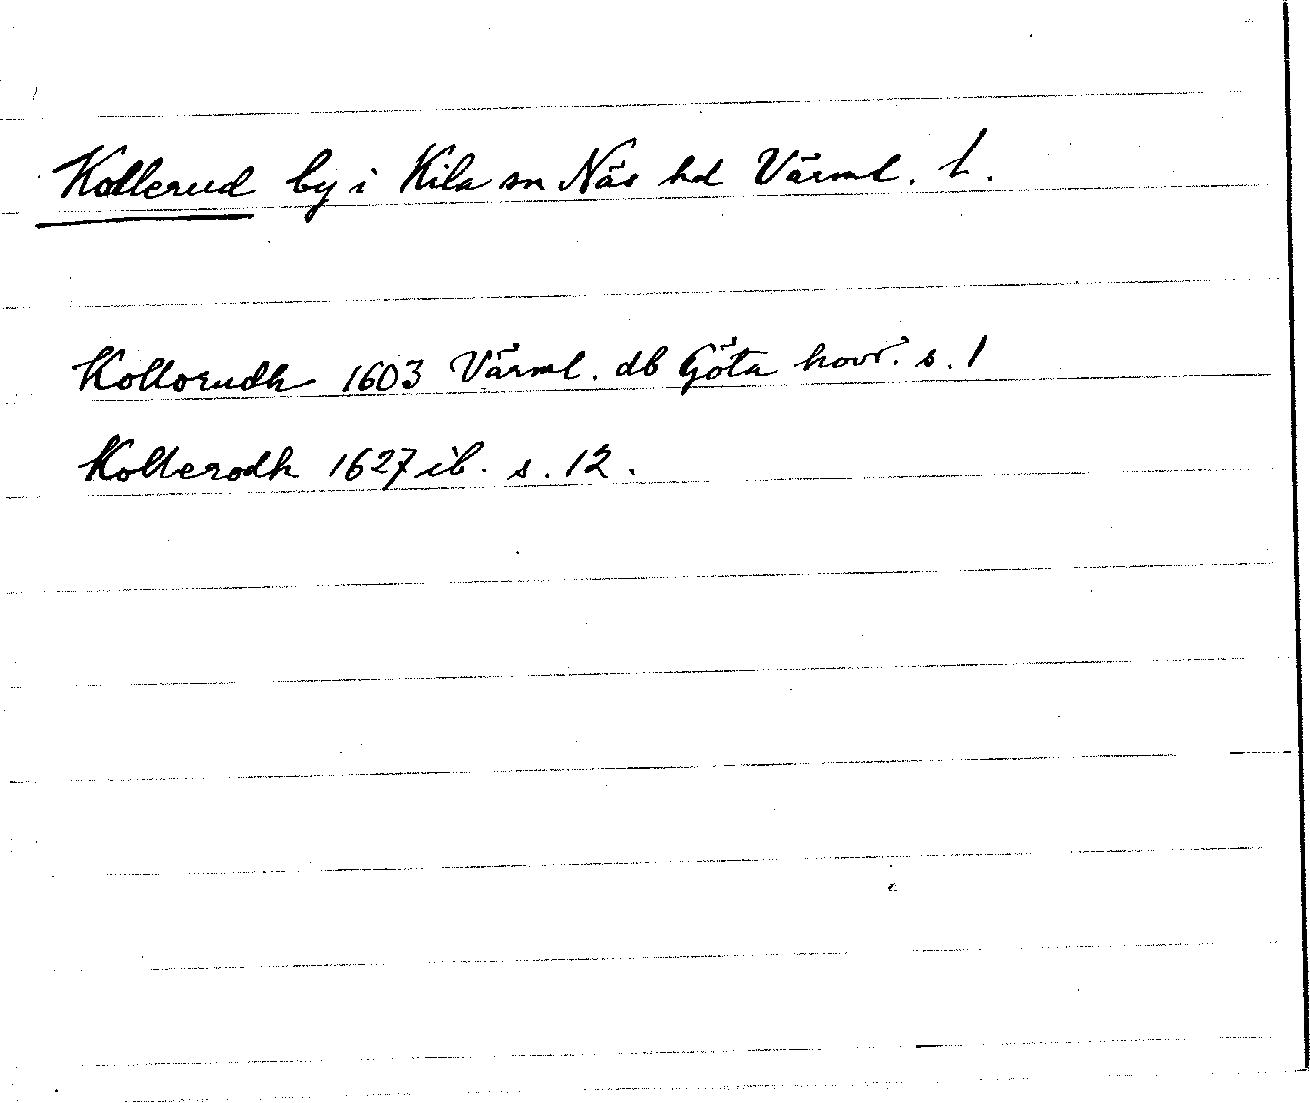 Kollerud by i Kila sn Näs hd Värml. L.
Kollorudh 1603 Värml. db Göta hovr. s. 1
Kollerodh 1627 ib. s. 12.